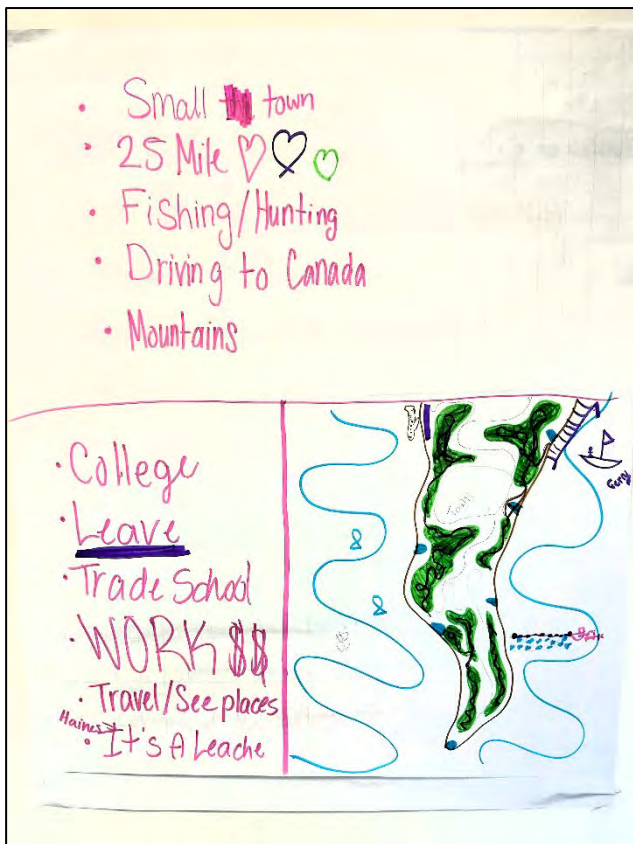 • Small town
• 25 Mile
• Fishing/Hunting
• Driving to Canada
• Mountains
• College
• Leave
• Trade School
• WORK $$
• Travel/See places
Haines
• It's A Leache
Town